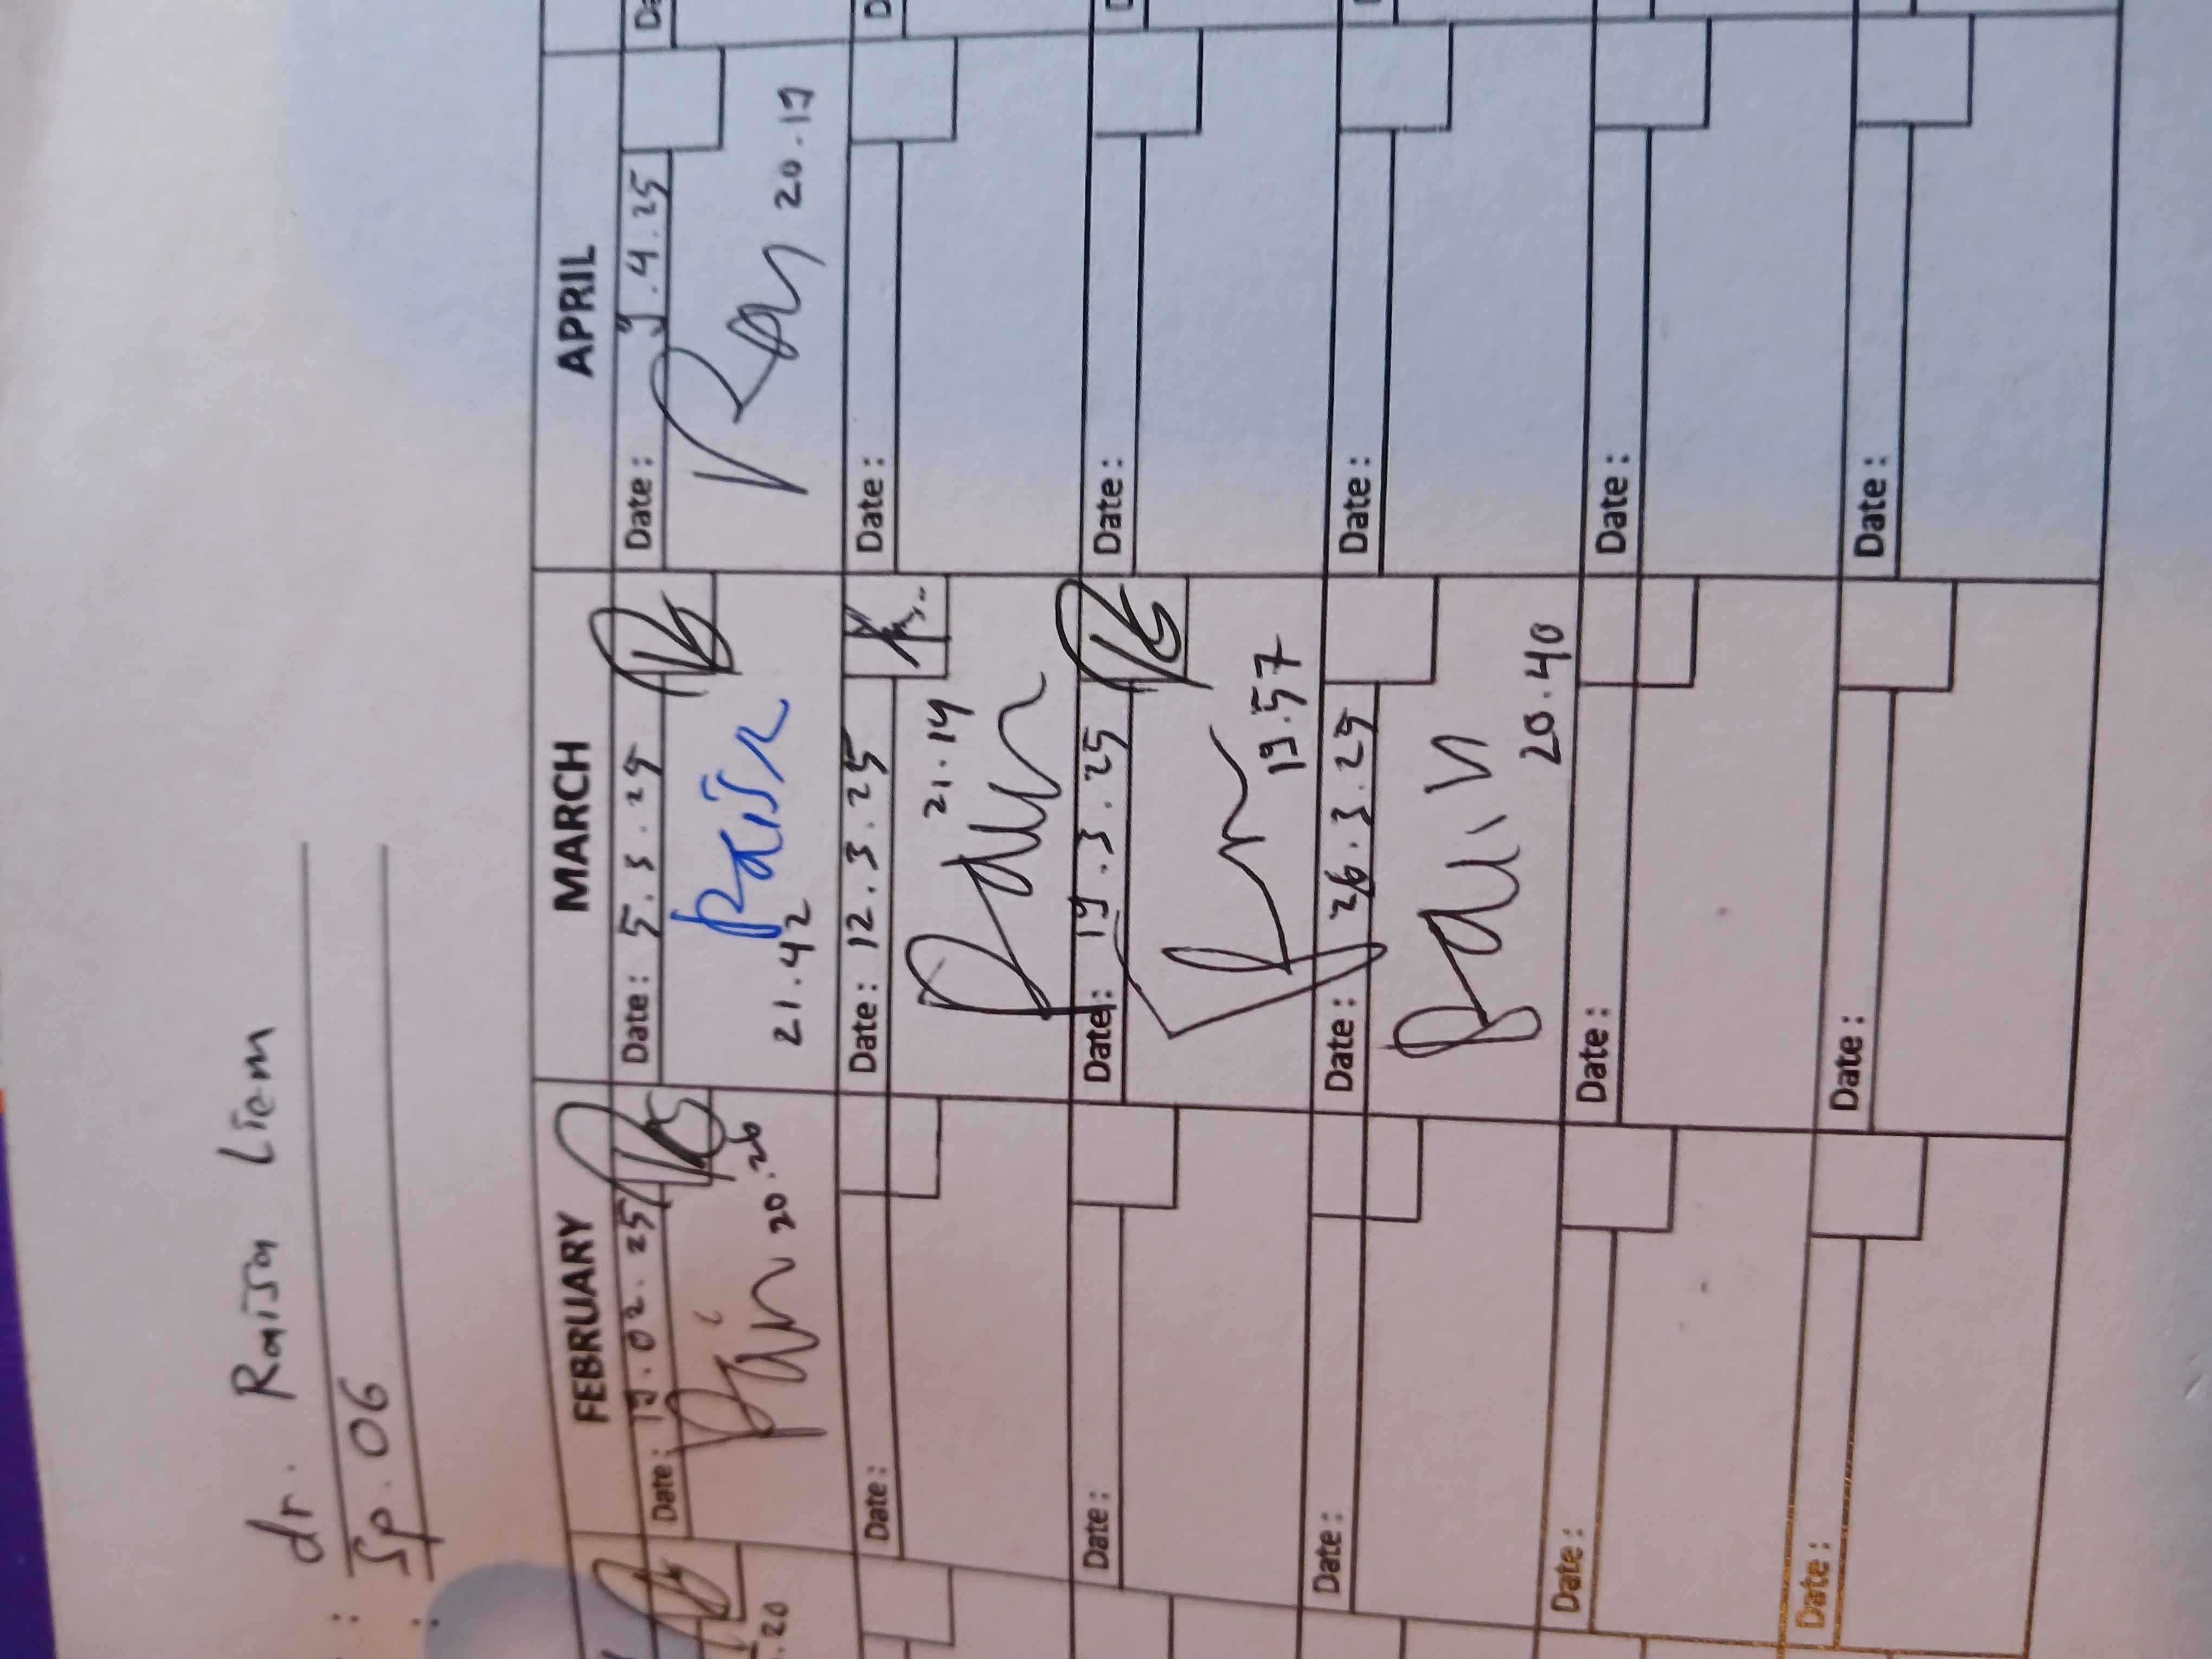 : dr. Raisa Liem
: Sp. 06
FEBRUARY MARCH APRIL
Date: 19.02.25 Date: 5.3.25 Date: 9.4.25
20.26
Raisa
21.42
20.19
Date: Date: 12.3.25 Date:
21.14
Date: Date: 19.3.25 Date:
19.57
Date: Date: 26.3.25 Date:
20.40
Date: Date: Date:
Date: Date: Date: